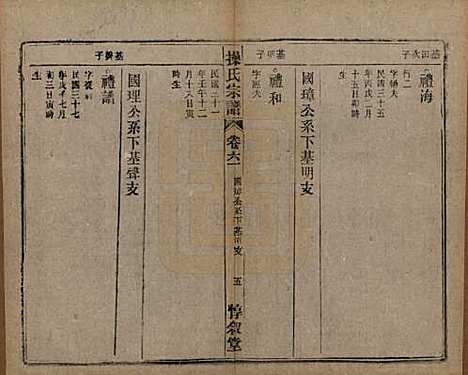 基田次子
禮海
行二
字鏡夫
民國三十五
年丙戌二月
十五日卯時
生
國璋公系下基明支
基明子
禮和
字照夫
民國三十一
年壬午十二
月十六日寅
時生
操氏宗譜
卷六
國璋公系下基田支
五
惇敘堂
國理公系下基聲支
子
禮譜
民國三十七
年戊子七月
初三日寅時
生